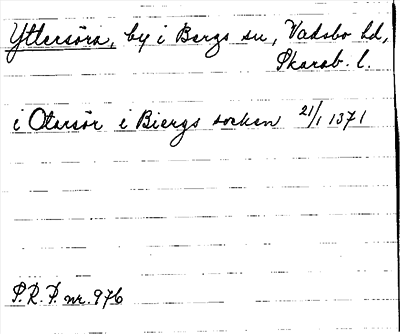 Yttersöra, by i Bergs sn, Vadsbo hd,
Skarab. l.
i Otersör i Biergs sochen 21/1 1371
P.R.P. nr. 976